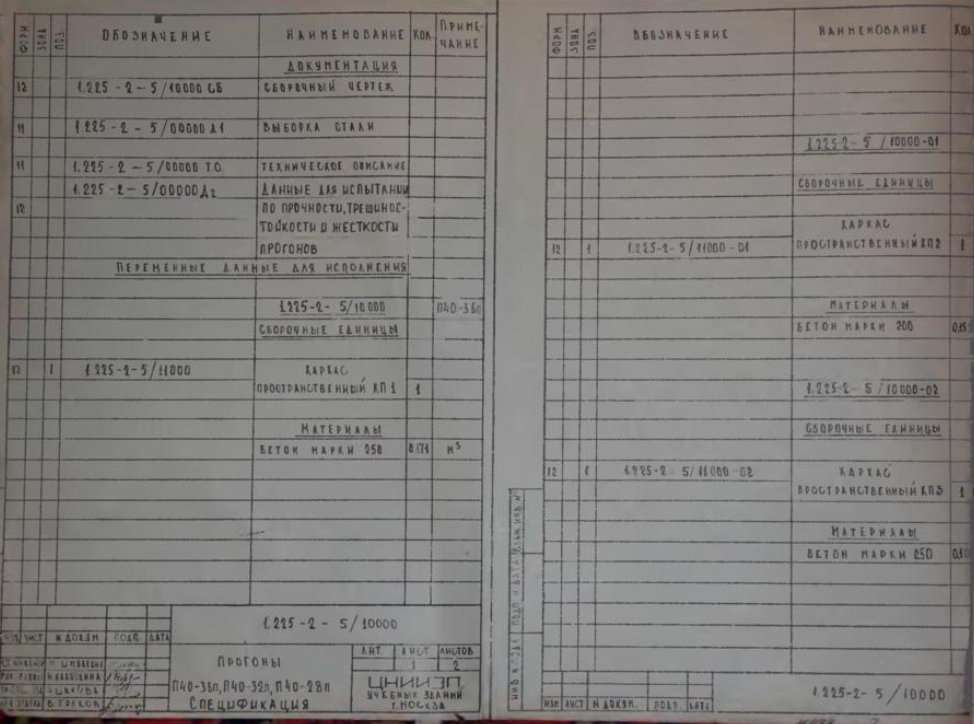 ФОРМ ЗОНА ПОЗ. ОБОЗНАЧЕНИЕ НАИМЕНОВАНИЕ КОЛ ПРИМЕ-
ЧАНИЕ
ДОКУМЕНТАЦИЯ
12 1.225-2-5/10000 СБ СБОРОЧНЫЙ ЧЕРТЕЖ
11 1.225-2-5/00000 Д1 ВЫБОРКА СТАЛИ
11 1.225-2-5/00000 ТО ТЕХНИЧЕСКОЕ ОПИСАНИЕ
1.225-2-5/00000 Д2 ДАННЫЕ ДЛЯ ИСПЫТАНИЙ
12 ПО ПРОЧНОСТИ, ТРЕЩИНОС-
ТОЙКОСТИ И ЖЕСТКОСТИ
ПРОГОНОВ
ПЕРЕМЕННЫЕ ДАННЫЕ ДЛЯ ИСПОЛНЕНИЯ
1.225-2-5/10000 П40-36п
СБОРОЧНЫЕ ЕДИНИЦЫ
12 1 1.225-2-5/11000 КАРКАС
ПРОСТРАНСТВЕННЫЙ КП1 1
МАТЕРИАЛЫ
БЕТОН МАРКИ 250 0.171 М³
1.225-2-5/10000
ЛИСТ N ДОКУМ. ПОДП. ДАТА
ПРОГОНЫ
П40-36п, П40-32п, П40-28п
СПЕЦИФИКАЦИЯ
ЛИТ. ЛИСТ ЛИСТОВ
1 2
ЦНИИЭП
УЧЕБНЫХ ЗДАНИЙ
Г. МОСКВА
ФОРМ ЗОНА ПОЗ. ОБОЗНАЧЕНИЕ НАИМЕНОВАНИЕ КОЛ
1.225-2-5/10000-01
СБОРОЧНЫЕ ЕДИНИЦЫ
КАРКАС
12 1 1.225-2-5/11000-01 ПРОСТРАНСТВЕННЫЙ КП2 1
МАТЕРИАЛЫ
БЕТОН МАРКИ 200
1.225-2-5/10000-02
СБОРОЧНЫЕ ЕДИНИЦЫ
12 1 1.225-2-5/11000-02 КАРКАС
ПРОСТРАНСТВЕННЫЙ КП3 1
МАТЕРИАЛЫ
БЕТОН МАРКИ 250
ПОДП. И ДАТА ВЗАМ. ИНВ. N
ИЗМ ЛИСТ N ДОКУМ. ПОДП. ДАТА
1.225-2-5/10000